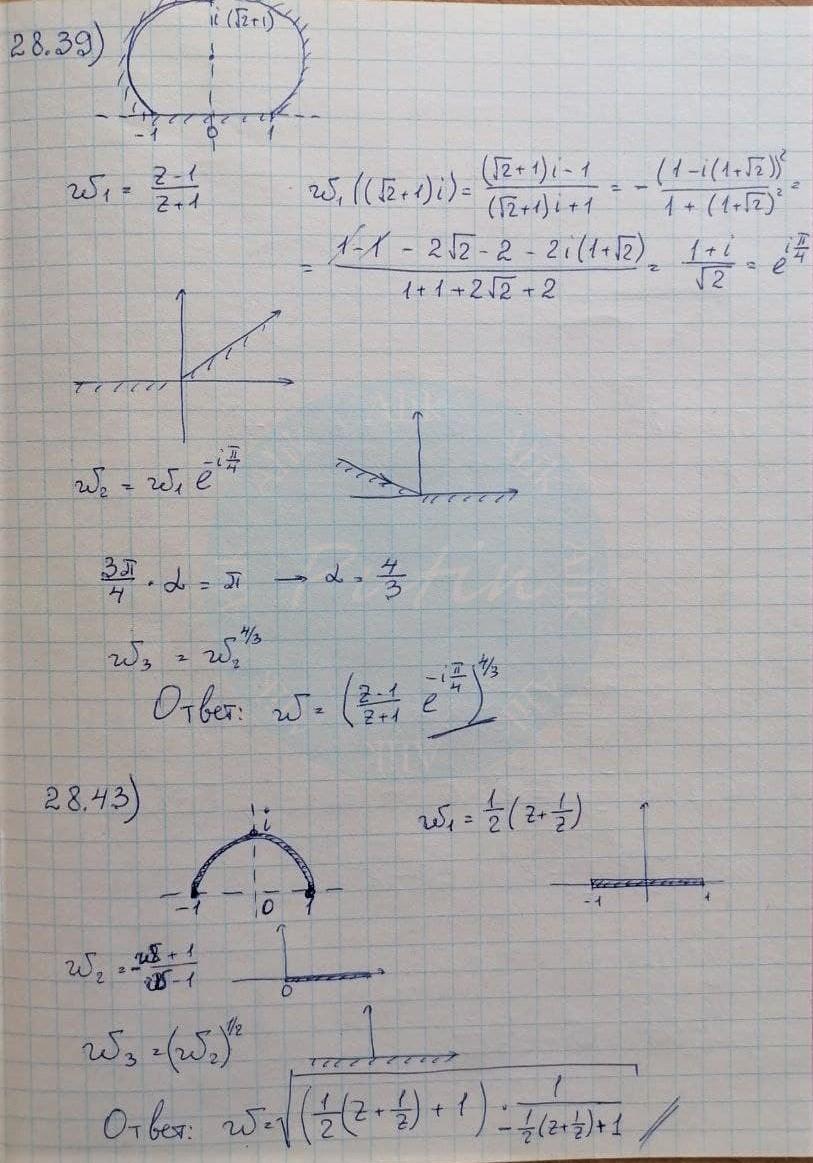 28.39)
i(√2+1)
-1 0 1
w₁ = (z-1)/(z+1)
w₁((√2+1)i) = ((√2+1)i-1)/((√2+1)i+1) = -(1-i(1+√2))²/(1+(1+√2)²) =
= (1-1-2√2-2-2i(1+√2))/(1+1+2√2+2) = (1+i)/√2 = e^(iπ/4)
w₂ = w₁ e^(-iπ/4)
3π/4 · α = π → α = 4/3
w₃ = w₂^(4/3)
Ответ: w = ((z-1)/(z+1) e^(-iπ/4))^(4/3)
28.43)
i
-1 0 1
w₁ = 1/2(z+1/z)
-1 1
0
w₃ = (w₂)^(1/2)
Ответ: w = √((1/2(z+1/z)+1) · 1/(-1/2(z+1/z)+1))